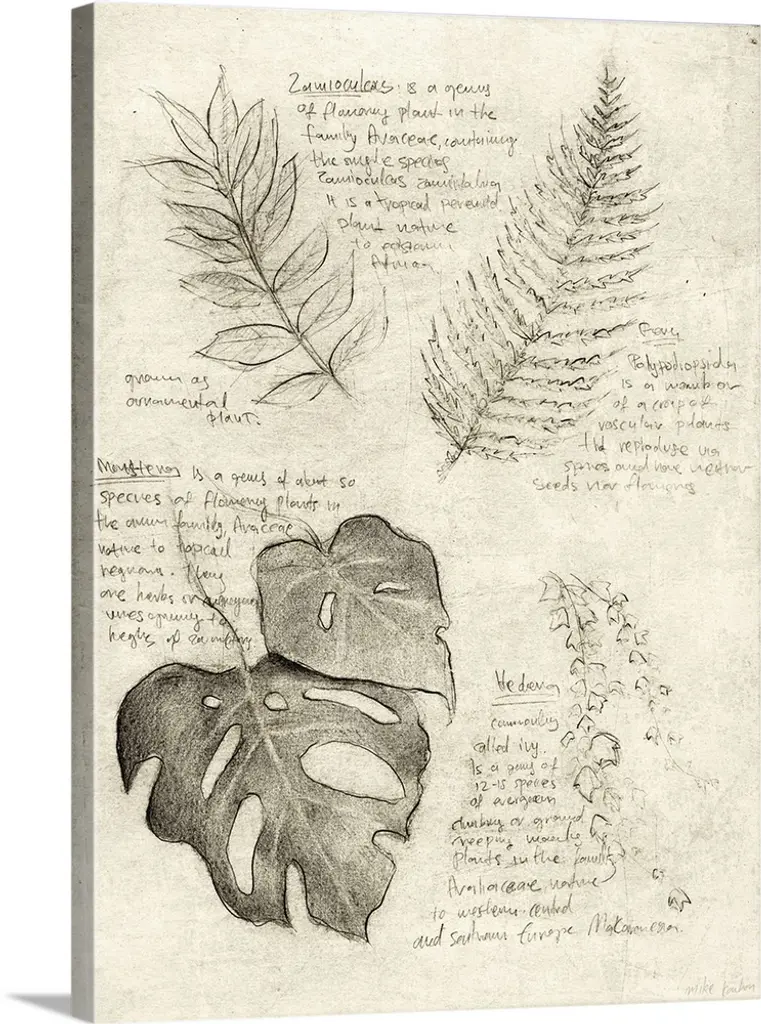 Zamioculcas: is a genus
of flowering plant in the
family Araceae, containing
the single species
Zamioculcas
It is a tropical perennial
plant native
to eastern
African
grown as
ornamental
plant.
Polypodiopsida
is a member
of a group of
vascular plants
that reproduce via
spores and have neither
seeds nor flowers
Monstera is a genus of about 50
species of flowering plants in
the arum family, Araceae
native to tropical
regions. They
are herbs or evergreen
vines growing to
heights of 20 meters
Hedera
commonly
called ivy.
Is a genus of
12-15 species
of evergreen
climbing or ground
creeping woody
plants in the family
Araliaceae native
to western, central
and southern Europe Makaronesia.
mike